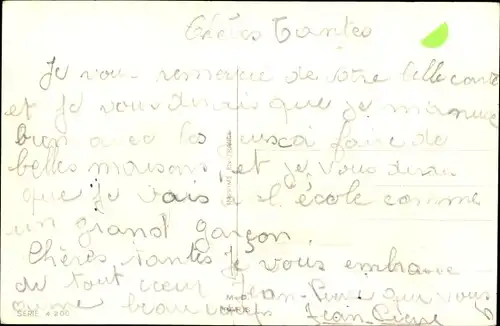 Chères Tantes
Je vous remercie de votre belle carte
et Je vous dirais que je m'amuse
bien avec les jusca faire de
belles maisons, et je vous dirai
que Je vais a l'école comme
un grand garçon.
Chères tantes Je vous embrasse
de tout cœur Jean-Pierre que vous
aime beaucoup Jean-Pierre
SERIE 4200